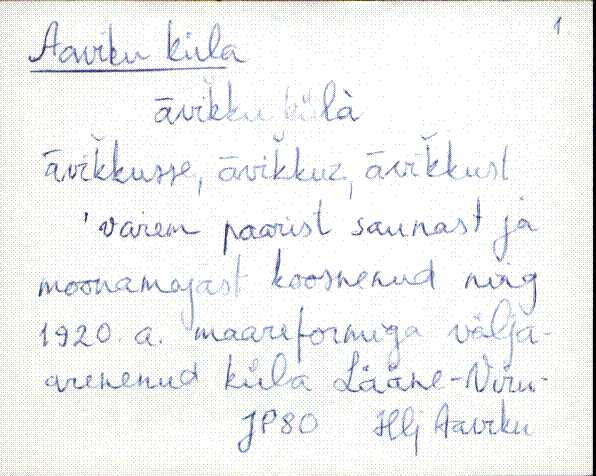 1
Aaviku küla
āvik̆ku külà
āvik̆kusse, āvik̆kuz, āvik̆kust
'varem paarist saunast ja
moonamajast koosnenud ning
1920. a. maareformiga välja-
arenenud küla Lääne-Viru-
JP80 Hlj Aaviku